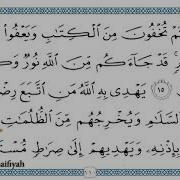 تُخْفُونَ مِنَ ٱلْكِتَٰبِ وَيَعْفُوا۟
قَدْ جَآءَكُم مِّنَ ٱللَّهِ نُورٌ
﴿١٥﴾ يَهْدِى بِهِ ٱللَّهُ مَنِ ٱتَّبَعَ
ٱلسَّلَٰمِ وَيُخْرِجُهُم مِّنَ ٱلظُّلُمَٰتِ
بِإِذْنِهِۦ وَيَهْدِيهِمْ إِلَىٰ صِرَٰطٍ
١١٠
aifiyah